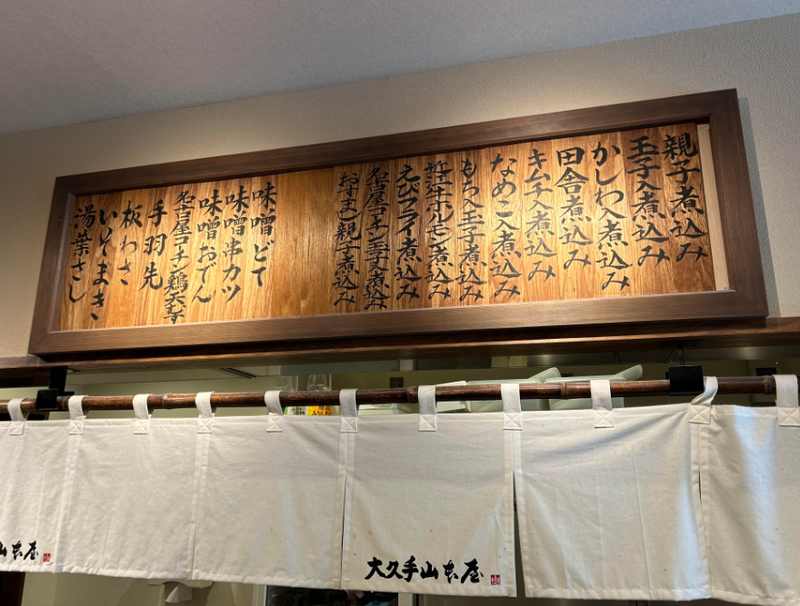 親子煮込み
玉子入煮込み
かしわ入煮込み
田舎煮込み
キムチ入煮込み
なめこ入煮込み
もち入玉子煮込み
近江ホルモン煮込み
えびフライ煮込み
名古屋コーチン玉子入煮込み
名古屋コーチン親子煮込み
味噌どて
味噌串カツ
味噌おでん
名古屋コーチン鶏天むす
手羽先
板わさ
いそまき
湯葉さし
山本屋
大久手山本屋